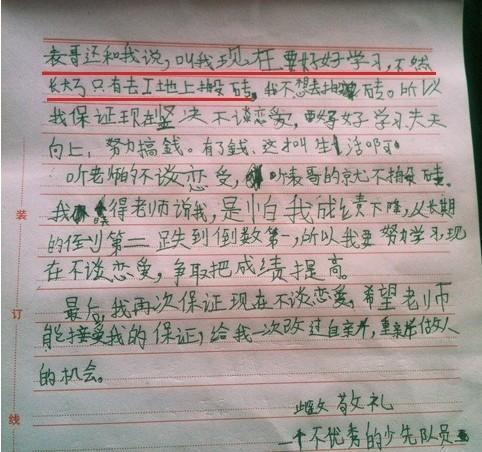 表哥还和我说，叫我现在要好好学习，不然
长大了只有去工地上搬砖。我不想去搬砖。所以
我保证现在坚决不谈恋爱，要好好学习天天
向上，努力搞錢。有了錢，这才叫生活啊
听老师的不谈恋爱，听表哥的就不搬砖。
我得老师说我，是怕我成绩下降，从长期
的倒数第二跌到倒数第一，所以我要努力学习，现
在不谈恋爱，争取把成绩提高。
最后，我再次保证现在不谈恋爱，希望老师
能接受我的保证，给我一次改过自新，重新做人
的机会。
敬礼
一个不优秀的少先队员
装
订
线